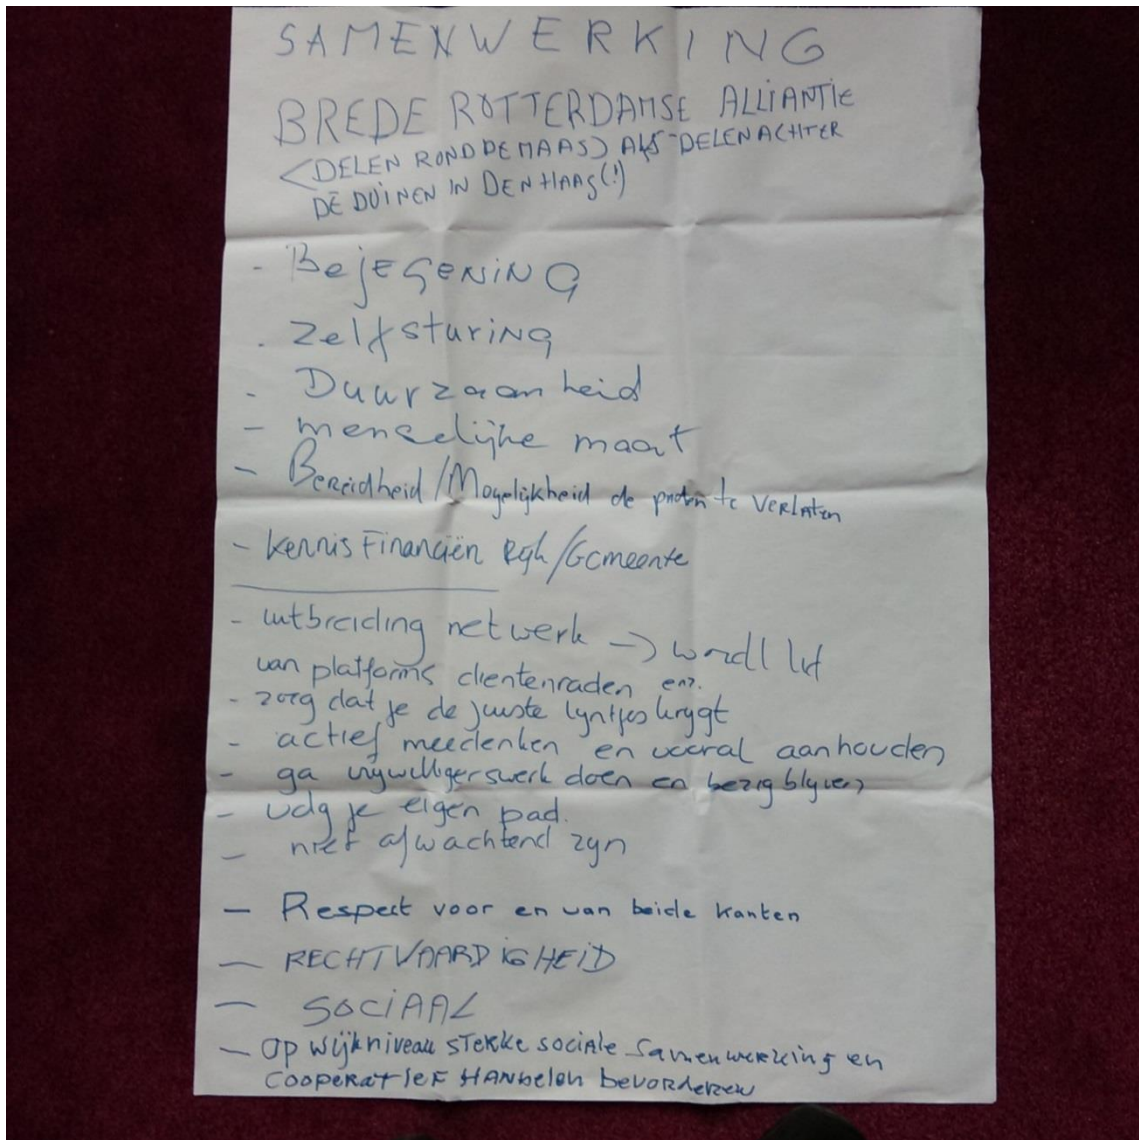 SAMENWERKING
BREDE ROTTERDAMSE ALLIANTIE
<DELEN ROND DE MAAS) ALS DELEN ACHTER
DE DUINEN IN DEN HAAG(!)
- BejEGENING
- Zelfsturing
- Duurzaamheid
- menselijke maat
- Bereidheid/Mogelijkheid de paden te VERLATEN
- Kennis Financiën Rijk/Gemeente
- uitbreiding netwerk -> wordt lid
van platforms clientenraden enz.
- zorg dat je de juiste lyntjes krygt
- actief meedenken en vooral aanhouden
- ga vrywilligerswerk doen en bezig blyven
- volg je eigen pad.
- niet afwachtend zyn
- Respect voor en van beide kanten
- RECHTVAARDIGHEID
- SOCIAAL
- Op wijkniveau STERKE sociale Samenwerking en
COOPERATIEF HANDELEN bevorderen